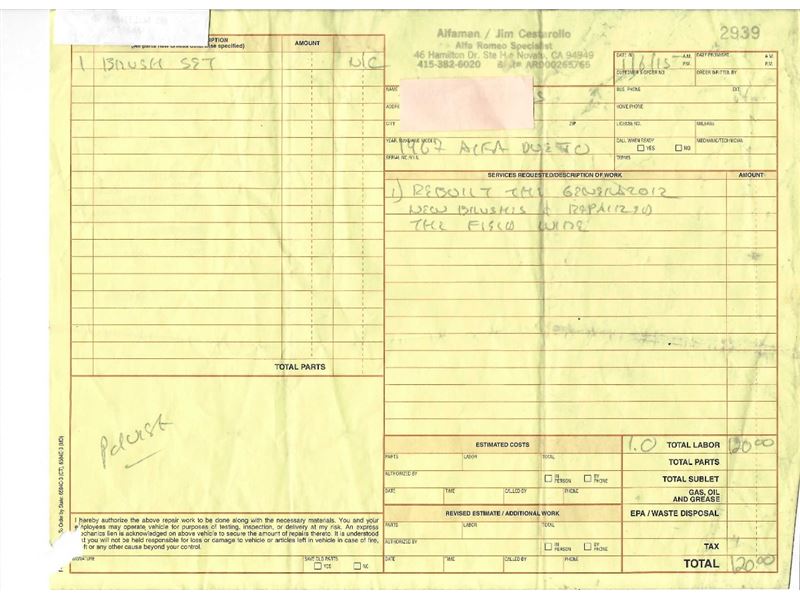 Alfaman / Jim Cestarollo
Alfa Romeo Specialist
46 Hamilton Dr. Ste H • Novato, CA 94949
415-382-6020
2939
(All parts new unless otherwise specified)
AMOUNT
1 BRUSH SET N/C
TOTAL PARTS
DATE IN 1/6/15 A.M. P.M.
CUSTOMER'S ORDER NO.
ORDER WRITTEN BY
A.M.
P.M.
NAME
BUS. PHONE
EXT.
ADDRE
HOME PHONE
CITY
ZIP
LICENSE NO.
MILEAGE
1967 ALFA DUETTO
CALL WHEN READY
YES NO
MECHANIC/TECHNICIAN
SERIAL NO./V.I.N.
TERMS
SERVICES REQUESTED/DESCRIPTION OF WORK
AMOUNT
1) REBUILT THE GENERATOR
NEW BRUSHES & REPAIRED
THE FIELD WIRE
ESTIMATED COSTS
PARTS LABOR TOTAL
AUTHORIZED BY
IN PERSON
BY PHONE
DATE TIME CALLED BY PHONE
REVISED ESTIMATE / ADDITIONAL WORK
PARTS LABOR TOTAL
AUTHORIZED BY
IN PERSON
BY PHONE
DATE TIME CALLED BY PHONE
1.0 TOTAL LABOR 120 00
TOTAL PARTS
TOTAL SUBLET
GAS, OIL AND GREASE
EPA / WASTE DISPOSAL
TAX
TOTAL 120 00
I hereby authorize the above repair work to be done along with the necessary materials. You and your
employees may operate vehicle for purposes of testing, inspection, or delivery at my risk. An express
chanics lien is acknowledged on above vehicle to secure the amount of repairs thereto. It is understood
t you will not be held responsible for loss or damage to vehicle or articles left in vehicle in case of fire,
ft or any other cause beyond your control.
SAVE OLD PARTS
YES NO